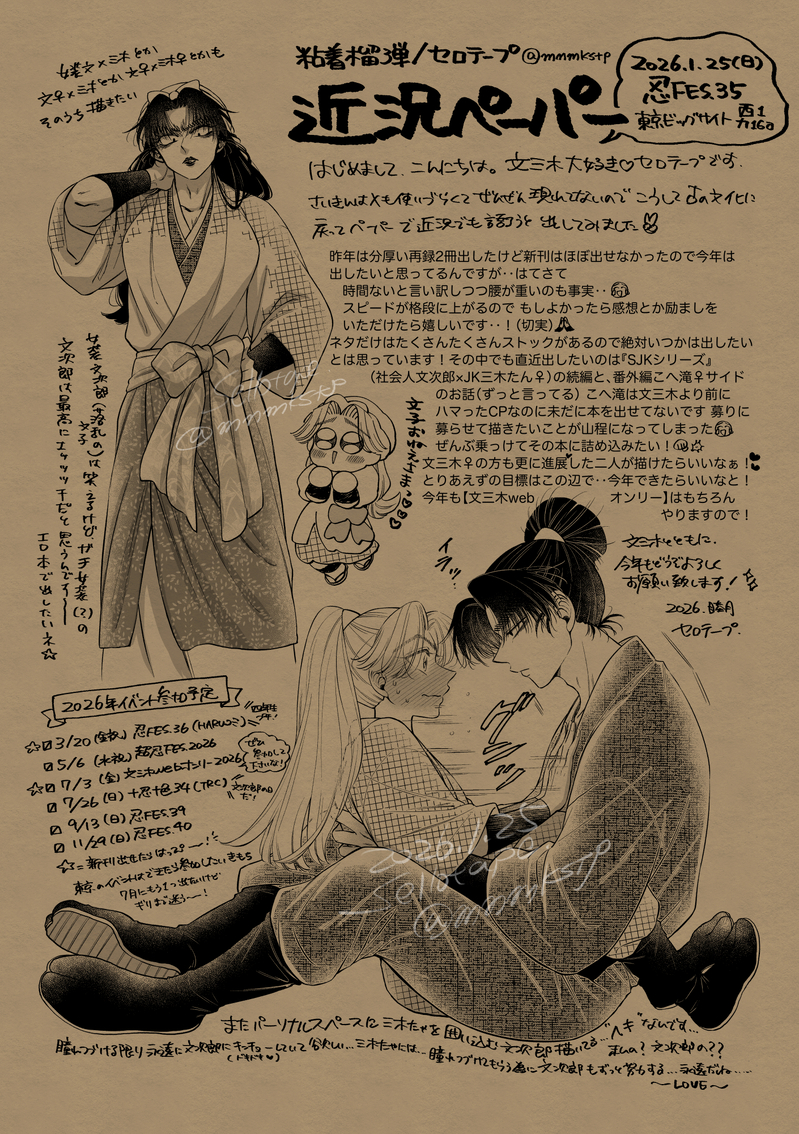 粘着榴弾/セロテープ@mmmkstp
近況ペーパー
2026.1.25(日)
忍FES.35
東京ビッグサイト 西1
カ16a
女装文×三木とか
文♀×三木とか 文♀×三木♀とかも
そのうち描きたい
はじめまして、こんにちは。文三木大好き♡セロテープです。
さいきんはXも使いづらくてぜんぜん現れてないので こうして古の文化に
戻ってペーパーで近況でも語ろうと出してみました
昨年は分厚い再録2冊出したけど新刊はほぼ出せなかったので今年は
出したいと思ってるんですが‥はてさて
時間ないと言い訳しつつ腰が重いのも事実‥
スピードが格段に上がるので もしよかったら感想とか励ましを
いただけたら嬉しいです‥!(切実)
ネタだけはたくさんたくさんストックがあるので絶対いつかは出したい
とは思っています!その中でも直近出したいのは『SJKシリーズ』
(社会人文次郎×JK三木たん♀)の続編と、番外編こへ滝♀サイド
のお話(ずっと言ってる) こへ滝は文三木より前に
ハマったCPなのに未だに本を出せてないです 募りに
募らせて描きたいことが山程になってしまった
ぜんぶ乗っけてその本に詰め込みたい!
文三木♀の方も更に進展した二人が描けたらいいなぁ!
とりあえずの目標はこの辺で‥今年できたらいいなと!
今年も【文三木web オンリー】はもちろん
やりますので!
文三木とともに、
今年もどうぞよろしく
お願い致します!
2026.睦月
セロテープ.
女装文次郎(落乱の)は笑えるけど、ガチ女装(?)の
文子
文次郎は最高にエッッッチだと思うんです〜
エロ本で出したいネ☆
文子おねえさま♡
イラッ‥
2026年イベント参加予定
☆3/20(金祝)忍FES.36(HARUコミ)
5/6(水祝)超忍FES.2026
☆7/3(金)文三木webオンリー2026
ぜひ
参加して
下さいな!
7/26(日)十忍十色.34(TRC)
文次郎の日
だ!
9/13(日)忍FES.39
11/29(日)忍FES.40
☆=新刊出せたらはっぴー〜!
東京のイベントはできたら参加したいきもち
7月にもう1つ出たいけど
ギリお迷う〜!
Sellotape
@mmmkstp
2026.1.25
Sellotape
@mmmkstp
またパーソナルスペースに三木たゃを囲い込む文次郎描いてる…"ヘキ"なんです…
私の?文次郎の??
瞳れつづける限り永遠に文次郎にキュキューしていて欲しい…三木たゃには…
(ドキドキ♡)
瞳れつづけてもらう為に文次郎もずっと努力する…永遠だね……
〜LOVE〜